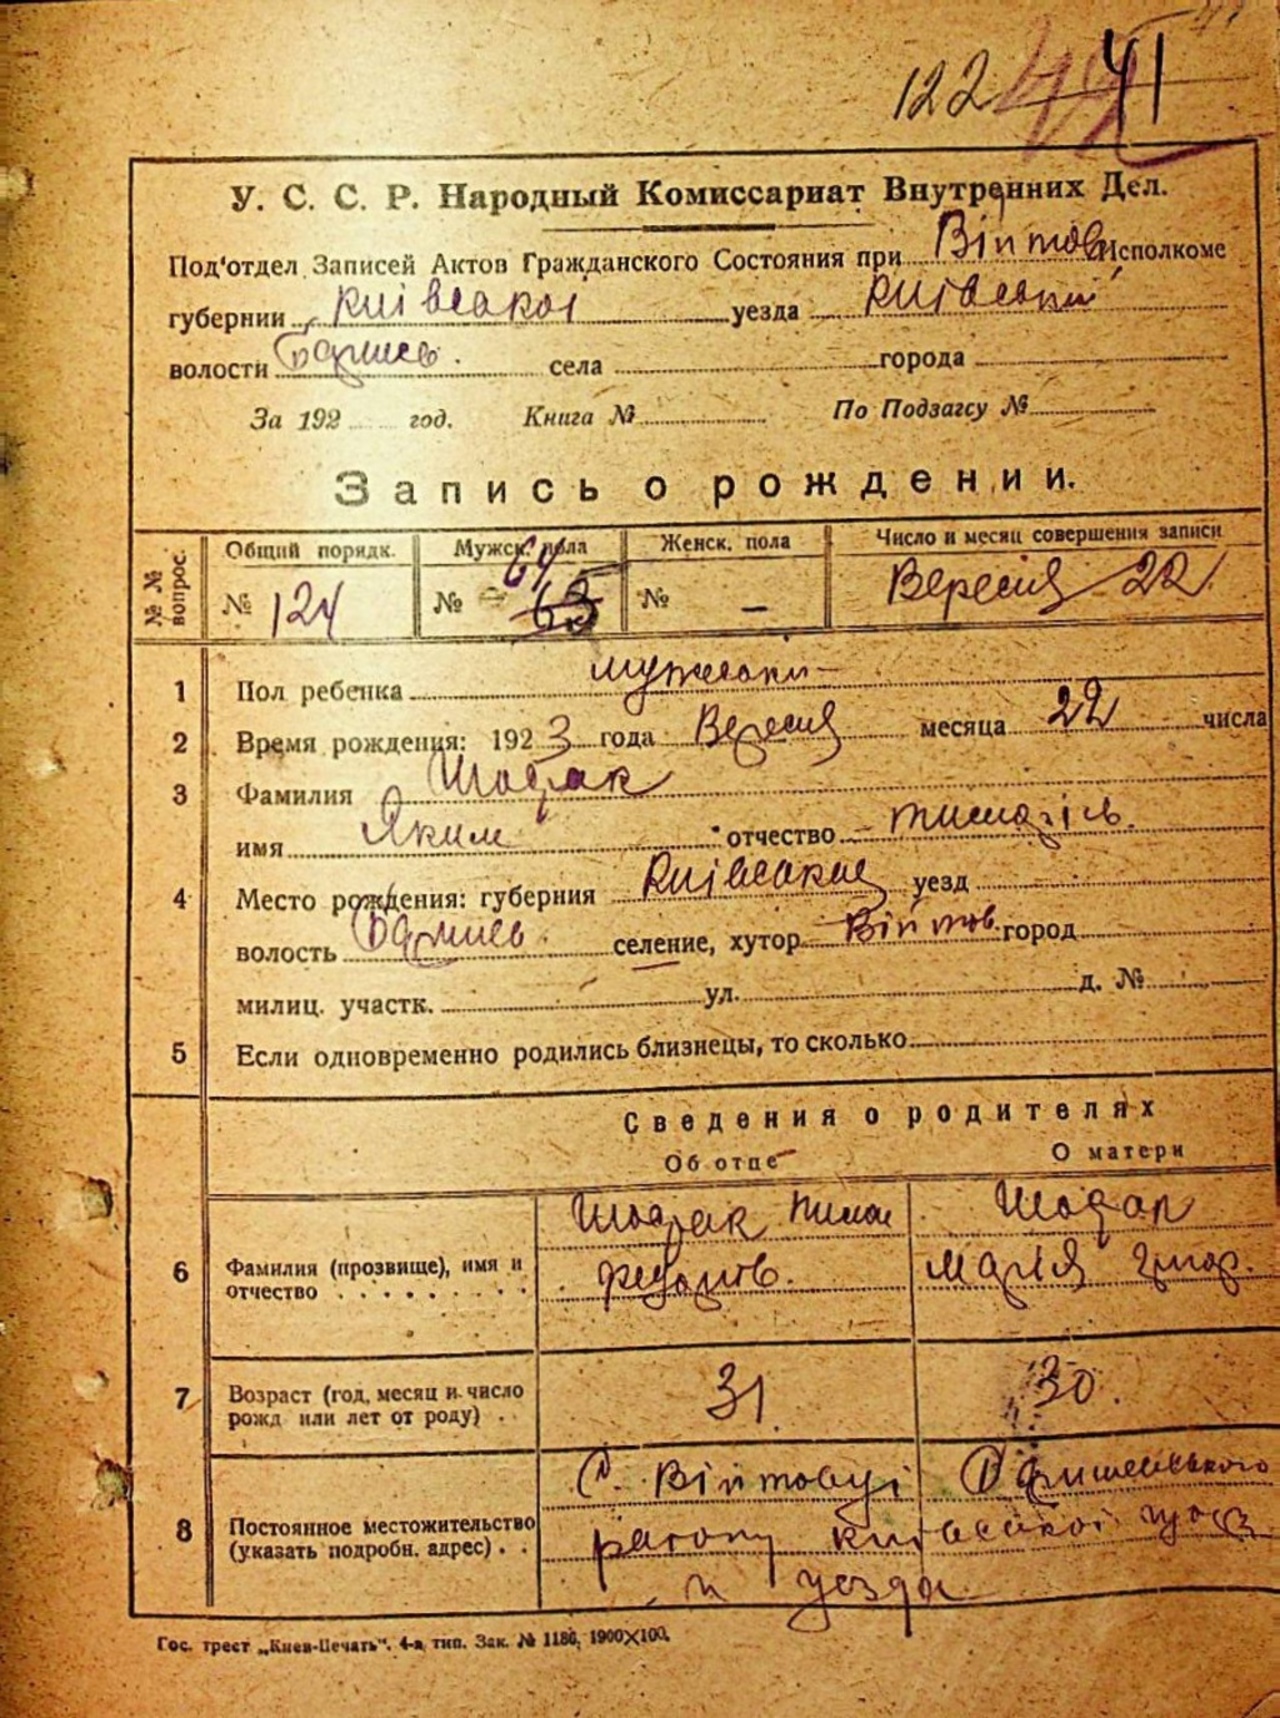 122 42 41
У. С. С. Р. Народный Комиссариат Внутренних Дел.
Под'отдел Записей Актов Гражданского Состояния при Війтов. Исполкоме
губернии Київської уезда Київський
волости Бариш. села города
За 192 год. Книга № По Подзагсу №
Запись о рождении.
№ № вопрос. Общий порядк. Мужск. пола Женск. пола Число и месяц совершения записи
№ 124 № 64 63 № — Вересня 22
1 Пол ребенка мужеский
2 Время рождения: 1923 года Вересня месяца 22 числа
3 Фамилия Шафак
имя Яким отчество
4 Место рождения: губерния Київська уезд
волость селение, хутор Війтов. город
милиц. участк. ул. д. №
5 Если одновременно родились близнецы, то сколько
Сведения о родителях
Об отце О матери
Пимон
6 Фамилия (прозвище), имя и Марія Григор.
отчество
7 Возраст (год, месяц и число 31 30.
рожд или лет от роду)
С. Війтовці Баришевського
8 Постоянное местожительство района київської губ.
(указать подробн. адрес) и уезда
Гос. трест „Киев-Печать“. 4-я тип. Зак. № 1186, 1900×100.